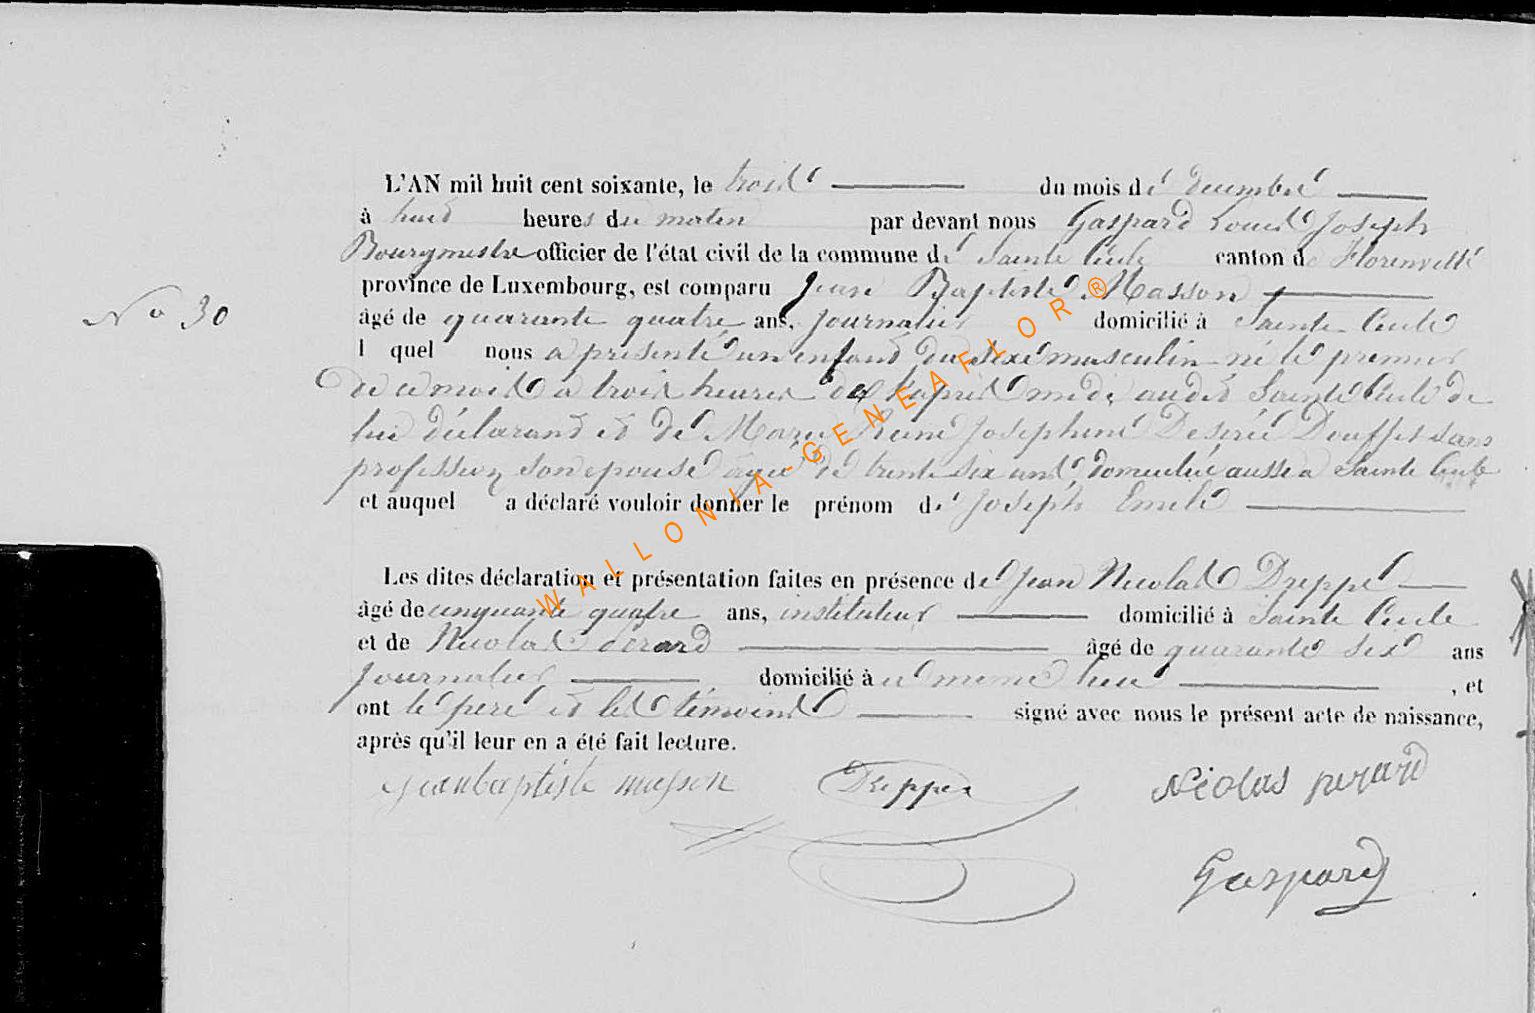 L'AN mil huit cent soixante, le trois du mois de décembre
à huit heures du matin par devant nous Gaspard Louis Joseph
Bourgmestre officier de l'état civil de la commune de Sainte Cécile canton de Florenville
province de Luxembourg, est comparu Jean Baptiste Masson
N° 30
âgé de quarante quatre ans, journalier domicilié à Sainte Cécile
l quel nous a présenté un enfant du sexe masculin né le premier
de ce mois à trois heures de l'après midi audit Sainte Cécile de
lui déclarant et de Marie Reine Josephine Desirée Douffet sans
profession son epouse agée de trente six ans domiciliée aussi a Sainte Cecile
et auquel a déclaré vouloir donner le prénom de Joseph Emile
Les dites déclaration et présentation faites en présence de Jean Nicolas Dreppe
âgé de cinquante quatre ans, instituteur domicilié à Sainte Cecile
et de Nicolas Gérard âgé de quarante six ans
journalier domicilié à ce même lieu , et
ont le père et les témoins signé avec nous le présent acte de naissance,
après qu'il leur en a été fait lecture.
jeanbaptiste masson Dreppe Nicolas jerard
Gaspard
WALLONIA-GENEAFLOR®